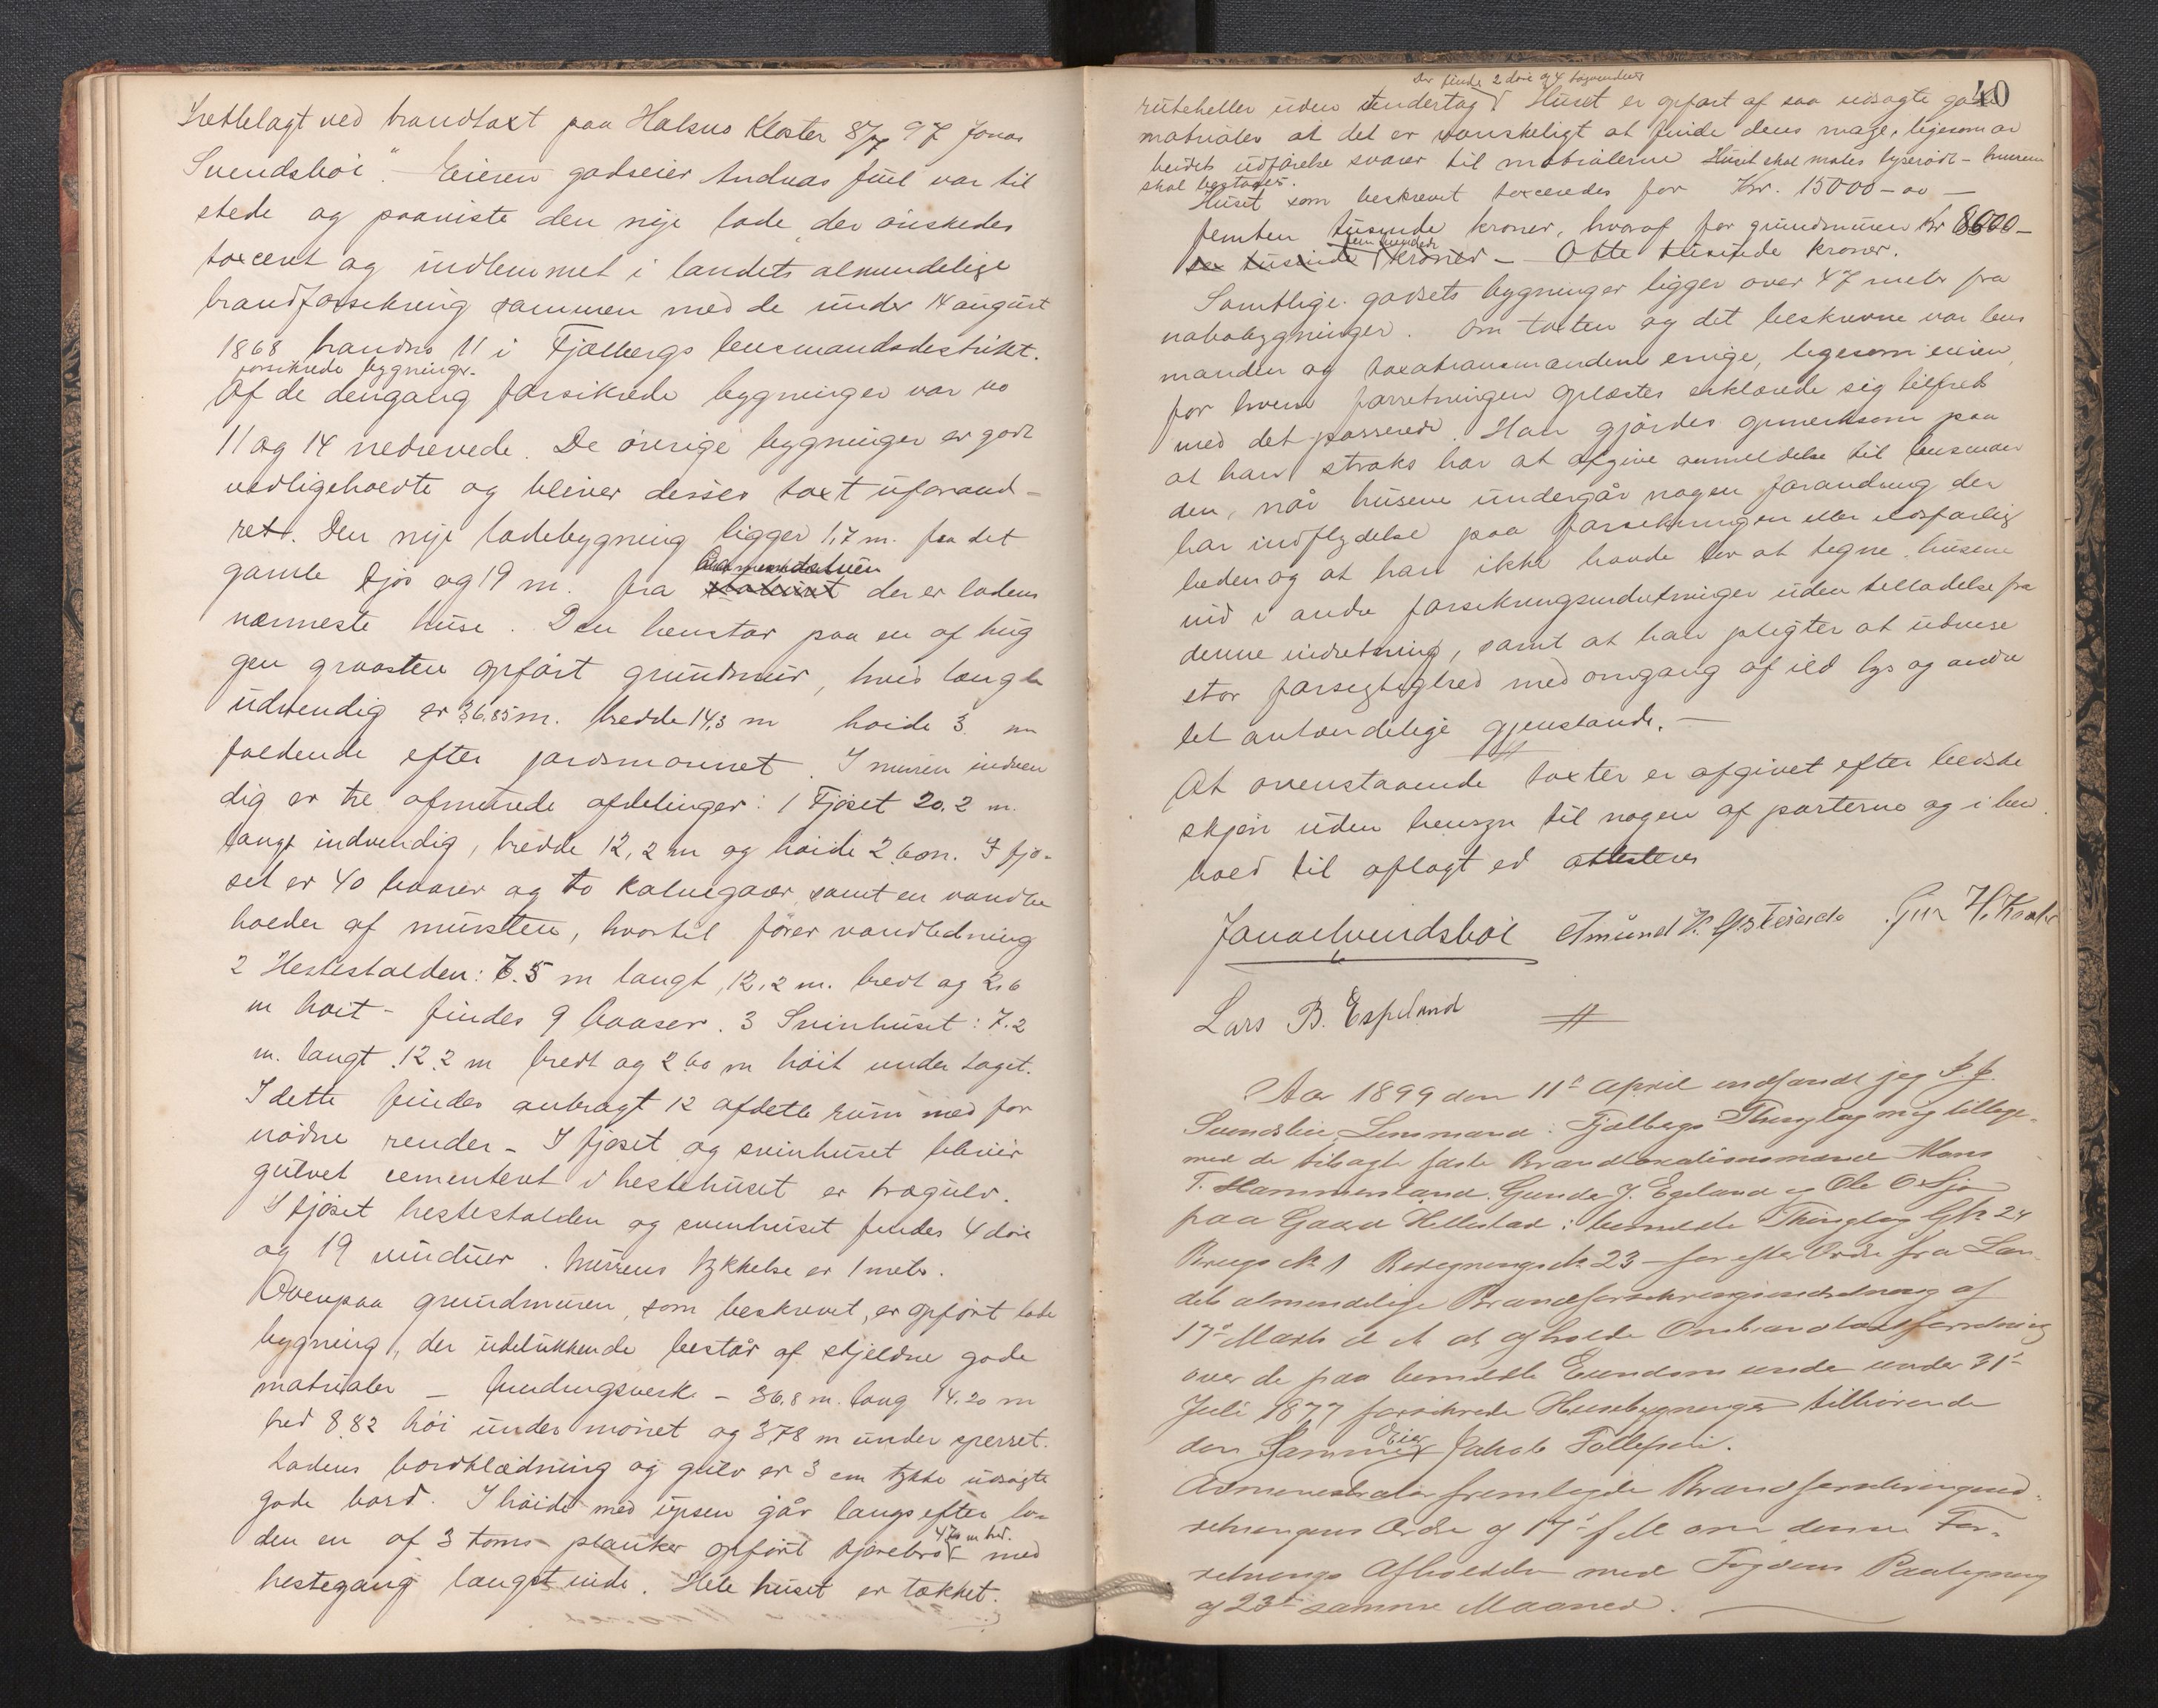 Fretlelagt ved brandtaxt paa Halsnø Kloster 8/7 97 Jonas
Svendsbøi". Eieren godseier Andreas Juel var til
stede og paaviste den nye lade, der ønskedes
taxeret og indlemmet i landets almindelige
brandforsikring sammen med de under 14 august
1868 brandno 11 i Fjælbergs lensmandsdestrikt.
forsikrede bygninger.
Af de dengang forsikrede bygninger var no
11 og 14 nedrevede. De øvrige bygninger er godt
vedligeholdte og bliver disses taxt uforand-
ret. Den nye ladebygning ligger 1,7 m. fra det
gamle fjøs og 19 m. fra der er ladens
nærmeste huse. Den henstar paa en af hug
gen graasten opført grundmur, hvis længde
udvendig er 36,85 m. bredde 14,3 m høide 3 m
faldende efter jordsmonnet. I muren indven
dig er tre afmurede afdelinger: 1 Fjøset 20.2 m.
langt indvendig, bredde 12,2 m og høide 2,60m. I fjø-
set er 40 baaser og to kalvegaar, samt en vandbe
holder af mursten, hvortil fører vandledning
2 Hestestalden: 6.5 m langt, 12,2 m. bredt og 2,6
m høit - findes 9 baaser. 3 Svinhuset: 7.2
m. langt 12.2 m bredt og 2.60 m høit under taget.
I dette findes anbragt 12 afdelte rum med for
nødne render - I fjøset og svinhuset bliver
gulvet cementeret i hestehuset er trægulv.
I fjøset hestestalden og svinhuset findes 4 døre
og 19 vinduer. Murens tykkelse er 1 meter.
Ovenpaa grundmuren, som beskrevet, er opført lade
bygning, der udelukkende består af skjeldne gode
matrialer - bindingsverk - 36,8 m. lang 14.20 m
bred 8.82 høi under mønet og 3,78 m under sperret.
Ladens bordklædning og gulv er 3 cm tykke udsøgte
gode bord. I høide med upsen går langs efter la-
den en af 3 toms planker opført kjørebro 4,70 m bred. med
hestegang langst inde. Hele huset er tækket.
40
Der findes 2 døre og 4
ruteheller uden undertag. Huset er opført af saa udsøgte gode
matrialer at det er vanskeligt at finde dens mage, ligesom ar
beidets udførelse svarer til matrialerne Huset skal males lyserødt - murene
skal berappes.
Huset som beskrevet taxeredes for Kr. 15000-00 -
femten tusinde kroner, hvoraf for grundmuren Kr 8000-
sex tusinde fem hundrede kroner - Otte tusinde kroner.
Samtlige godsets bygninger ligger over 47 meter fra
nabobygninger. Om taxten og det beskrevne var lens
manden og taxationsmændene enige, ligesom eieren,
for hvem forretningen oplæstes erklærede sig tilfreds
med det passerede. Han gjørdes opmerksom paa
at han straks har at afgive anmeldelse til lensman
den, når husene undergår nogen forandring der
har indflydelse paa forsikringen eller ildsfarlig
heden og at han ikke havde lov at tegne husene
ind i andre forsikringsindretninger uden tilladelse fra
denne indretning, samt at han pligter at udvise
stor forsigtighed med omgang af ild lys og andre
let antændelige gjenstande. -
At ovenstaaende taxter er afgivet efter bedste
skjøn uden hensyn til nogen af parterne og i hen
hold til aflagt ed attesteres
Jonas Svendsbøi Amund H. Lars B. Espeland
Aar 1899 den 11te April indfandt jeg
Svendsbøi, Lensmand i Fjælbergs Thinglag mig tillige-
med de tilsagte faste Brandtaxationsmænd Mons
T. Hammersland, Gunder J. Egeland og Ole O.
paa Gaard Hellestad i bemeldte Thinglag Gr. No 24
Brugs No 1 Beregnings No 23 - for efter Ordre fra Lan-
dets almindelige Brandforsikringsindretning af
17de Marts d. A. at afholde Ombrandtaxtforretning
over de paa bemeldte Eiendom under 31te
Juli 1877 forsikrede Husebygninger tilhørende
den Samme Eier Jakob Tollefsen.
Administrator fremlagde Brandforsikringsind-
retningens Ordre af 17de f. M. om denne For-
retnings Afholdelse med Fogdens Paategning
af 23de samme Maaned.